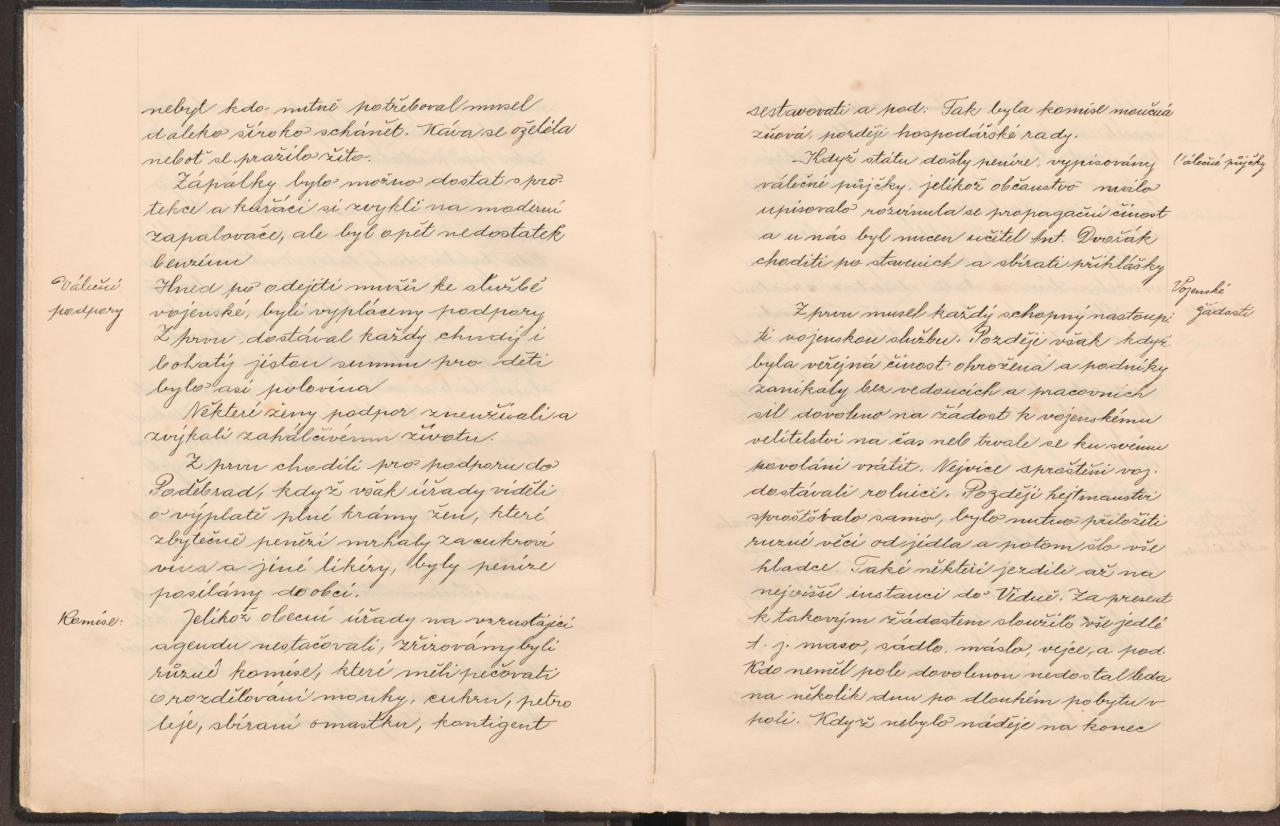 nebyl kdo nutně potřeboval musel
daleko široko schánět. Káva se oželela
neboť se pražilo žito.
Zápalky bylo možno dostat s pro-
tekce a kuřáci si zvykli na moderní
zapalovače, ale byl opět nedostatek
benzinu
Válečné
podpory
Hned po odejití mužů ke službě
vojenské, byli vypláceny podpory
Z prvu dostával každý chudý i
bohatý jistou summu pro děti
bylo asi polovina
Některé ženy podpor zneužívali a
zvykali zahálčivému životu.
Z prvu chodili pro podporu do
Poděbrad, když však úřady viděli
o výplatě plné krámy žen, které
zbytečně penězi mrhaly za cukroví
vína a jiné likéry, byly peníze
posílány do obcí.
Komise:
Jelikož obecní úřady na vzrustající
agendu nestačovali, zřizovány byli
různé komise, které měli pečovati
o rozdělování mouky, cukru, petro
leje, sbíraní omastku, kontigent
sestavovati a pod: Tak byla komise moučná
žňová, později hospodářské rady.
Válečné půjčky
Když státu došly peníze, vypisovány
válečné půjčky, jelikož občanstvo málo
upisovalo rozvinula se propagační činost
a u nás byl nucen učitel Ant. Dvořák
choditi po staveních a sbírati přihlášky
Vojenské
žádosti
Z prvu musel každý schopný nastoupi
ti vojenskou službu. Později však když
byla veřejná činost ohrožena a podniky
zanikaly bez vedoucích a pracovních
sil dovoleno na žádost k vojenskému
velitelství na čas neb trvale se ku svému
povolání vrátit. Nejvíce sproštění voj.
dostávali rolníci. Později hejtmanství
sprošťovalo samo, bylo nutno přiložiti
ruzné věci od jídla a potom šlo vše
hladce. Také někteří jezdili až na
nejvišší instanci do Vídně. Za present
k takovým žádostem sloužilo vše jedlé
t. j. maso, sádlo, máslo, vejce, a pod.
Kdo neměl pole dovolenou nedostal leda
na několik dnu po dlouhém pobytu v
poli. Když nebylo náděje na konec